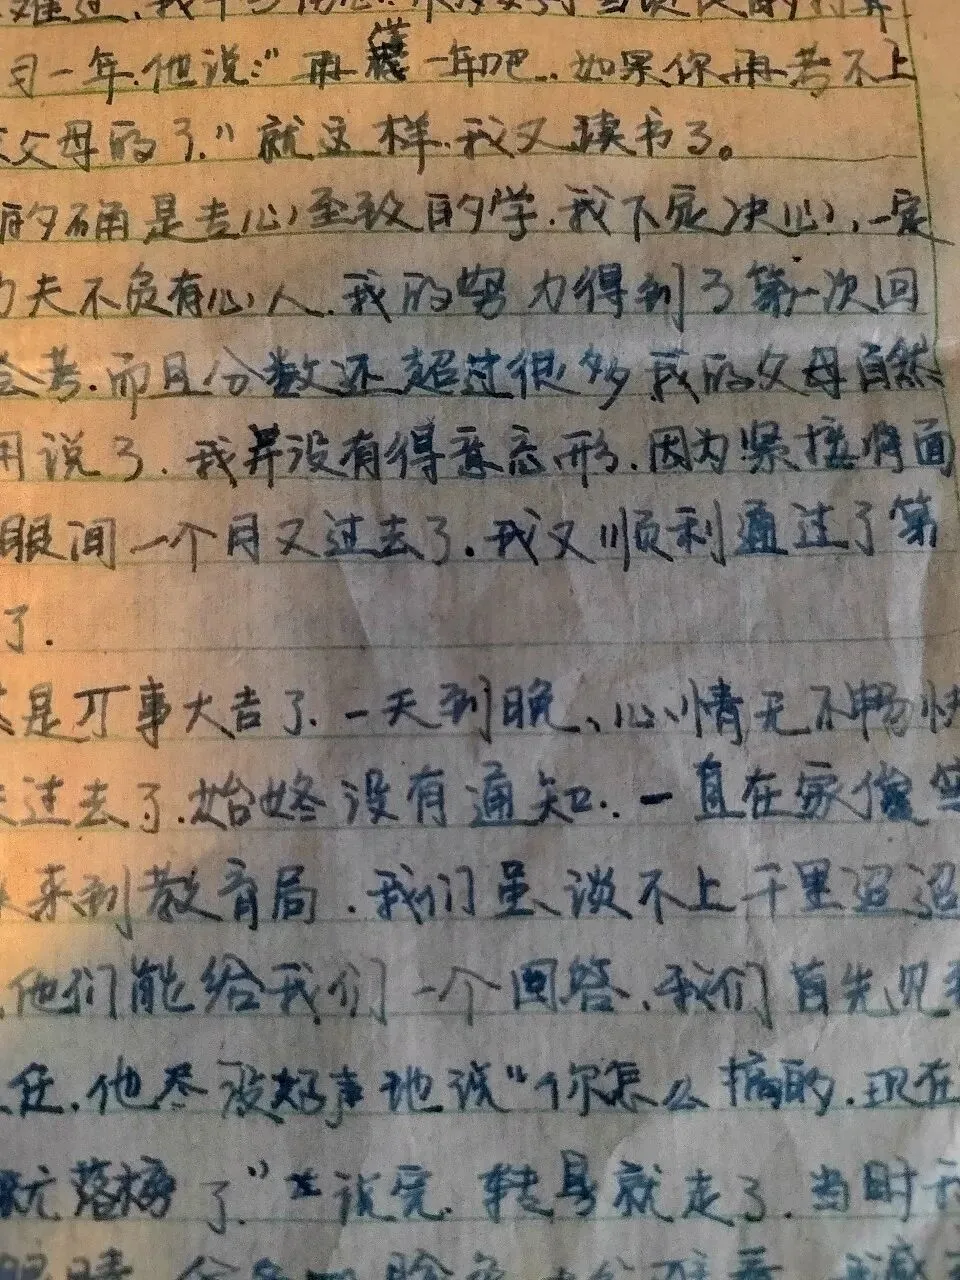 一年.他说:"再读一年吧..如果你再考不上
父母的了."就这样.我又读书了。
的确是专心至致的学.我下定决心,一定
夫不负有心人.我的努力得到了第一次回
会考.而且分数还超过很多 我的父母自然
用说了.我并没有得意忘形.因为紧接将面
眼间一个月又过去了.我又顺利通过了第
了.
是万事大吉了.一天到晚、心情无不畅快
过去了.始终没有通知.一直在家傻等
来到教育局.我们虽谈不上千里迢迢
他们能给我们一个回答.我们首先见
任.他尽没好声地说"你怎么搞的.现在
就落榜了"说完.转身就走了.当时
眼睛